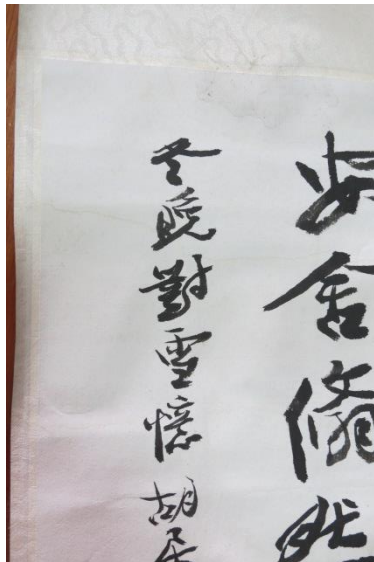 安舍翛然
冬晚對雪憶胡居